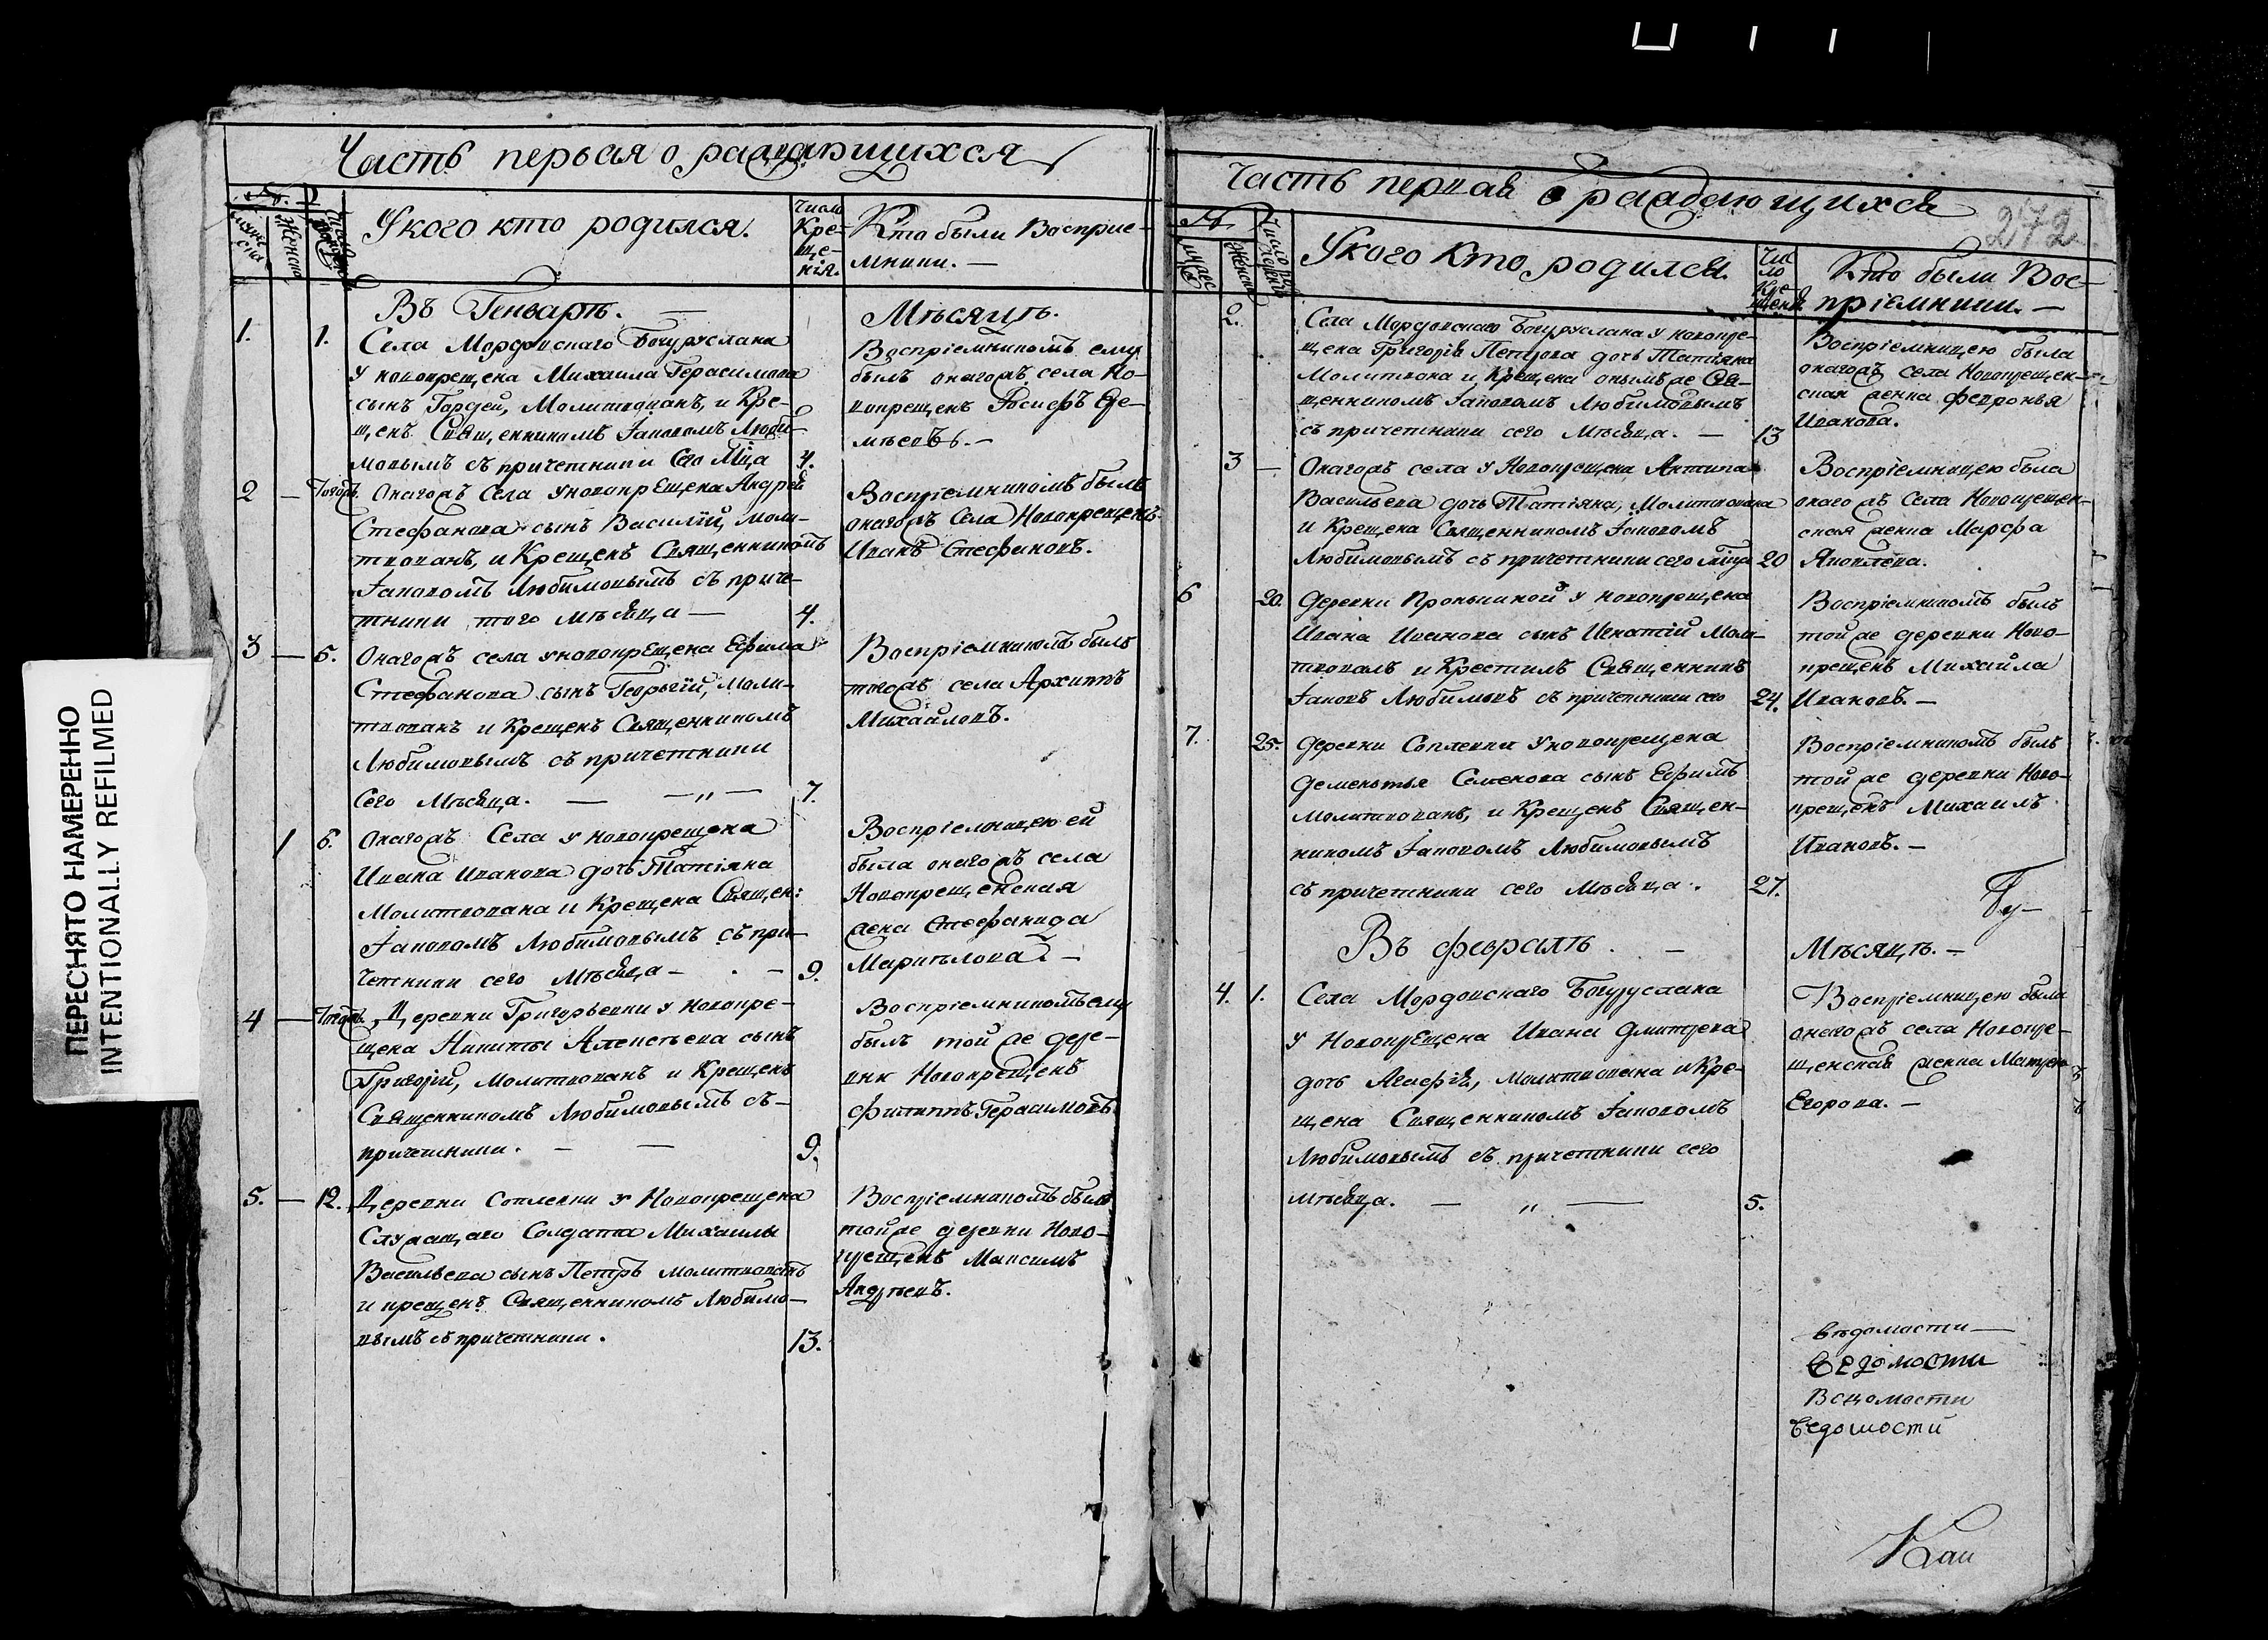 Часть первая о раждающихся
№.
мужеска
Женска
Число рожденія
У кого кто родился.
Число Кре-
ще-
нія.
Кто были Восприе-
мники. —
Въ Генваръ. —
Мѣсяцѣ.
1.
1.
Села Мордовскаго Бугуруслана
у новокрещена Михаила Герасимова
сынъ Гордей, Молитвованъ, и Кре-
щенъ Священникомъ Іаковомъ Люби-
мовымъ съ причетники Сего Мца
4.
Воспріемникомъ ему
былъ онагожъ села Но-
вокрещенъ Іосифъ Ере-
мѣевъ. —
2 —
Тогожъ
Онагожъ Села у новокрещена Андрей
Стефанова сынъ Василій, моли-
твованъ, и Крещенъ Священникомъ
Іаковомъ Любимовымъ съ приче-
тники того мѣсяца —
4.
Воспріемникомъ былъ
онагожъ Села Новокрещенъ
Иванъ Стефановъ.
3 —
5.
Онагожъ села у новокрещена Ефима
Стефанова сынъ Георгій, моли-
твованъ и Крещенъ Священникомъ
Любимовымъ съ причетники
Сего Мѣсяца. — — „ —
7.
Воспріемникомъ былъ
тогожъ села Архиппъ
Михайловъ.
1
6.
Онагожъ Села у новокрещена
Ивана Иванова дочь Татіяна
Молитвована и Крещена Священ:
Іаковомъ Любимовымъ съ при-
четники сего Мѣсяца — . —
9.
Воспріемницею ей
была онагожъ села
Новокрещенская
жена Стефанида
Маркелова. —
4 —
Тогожъ
Деревни Григорьевки у новокре-
щена Никиты Алексѣева сынъ
Григорій, Молитвованъ и Крещенъ
Священникомъ Любимовымъ съ-
причетники. — —
9.
Воспріемникомъ ему
былъ той же дере-
вни Новокрещенъ
Филиппъ Герасимовъ
5. —
12.
Деревни Соплевки у Новокрещена
Служащаго Солдата Михаилы
Васильева сынъ Петръ молитвованъ
и крещенъ Священникомъ Любимо-
вымъ съ причетники.
13.
Воспріемникомъ былъ
той же деревни Ново-
крещенъ Максимъ
Андреевъ.
Часть первая о раждающихся
272
№.
мужес
Женска
Число рожденія
У кого кто родился.
Чи
сло
кре-
щенія
Кто были Вос-
пріемники. —
2.
Села Мордовскаго Бугуруслана у новокре-
щена Григорія Петрова дочь Татіяна
Молитвована и Крещена онымъ же Свя-
щенникомъ Іаковомъ Любимовымъ
съ причетники сего Мѣсяца. —
13
Воспріемницею была
онагожъ села Новокрещен-
ская женка Февронья
Иванова.
3 —
Онагожъ села у Новокрещена Антипа
Васильева дочь Татіяна, Молитвована
и Крещена Священникомъ Іаковомъ
Любимовымъ съ причетники сего мца
20
Воспріемницею была
онагожъ Села Новокрещен-
ская женка Марфа
Яковлева.
6
20.
Деревни Пронькиной у новокрещена
Ивана Иванова сынъ Игнатій Моли-
твовалъ и Крестилъ Священникъ
Іаковъ Любимовъ съ причетники сего
24.
Воспріемникомъ былъ
той же деревни Ново-
крещенъ Михайла
Ивановъ. —
7.
25.
Деревни Соплевки у новокрещена
Дементья Семенова сынъ Ефимъ
молитвованъ, и Крещенъ Священ-
никомъ Іаковомъ Любимовымъ
съ причетники сего Мѣсяца.
27.
Воспріемникомъ былъ
той же деревни Ново-
крещенъ Михаилъ
Ивановъ. —
Бу-
Въ Февралѣ. —
Мѣсяцѣ. —
4.
1.
Села Мордовскаго Бугуруслана
у Новокрещена Ивана Дмитрева
дочь Агафія, Молитвована и Кре-
щена Священникомъ Іаковомъ
Любимовымъ съ причетники сего
мѣсяца. — „ —
5.
Воспріемницею была
онагожъ села Новокре-
щенская женка
Егорова. —
вѣдомости —
ведомости
Ведомости
ведомости
Как
ПЕРЕСНЯТО НАМЕРЕННО
INTENTIONALLY REFILMED